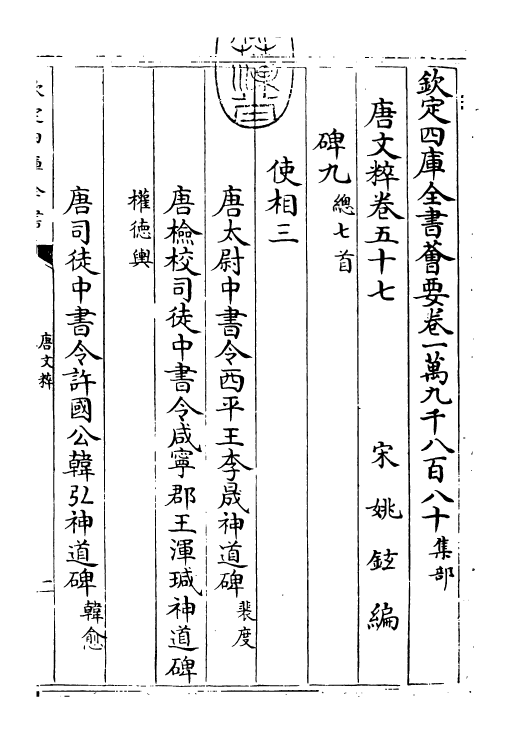 欽定四庫全書薈要卷一萬九千八百八十集部
唐文粹卷五十七
宋姚鉉編
碑九總七首
使相三
唐太尉中書令西平王李晟神道碑裴度
唐檢校司徒中書令咸寧郡王渾瑊神道碑
權德輿
唐司徒中書令許國公韓弘神道碑韓愈
唐文粹
二